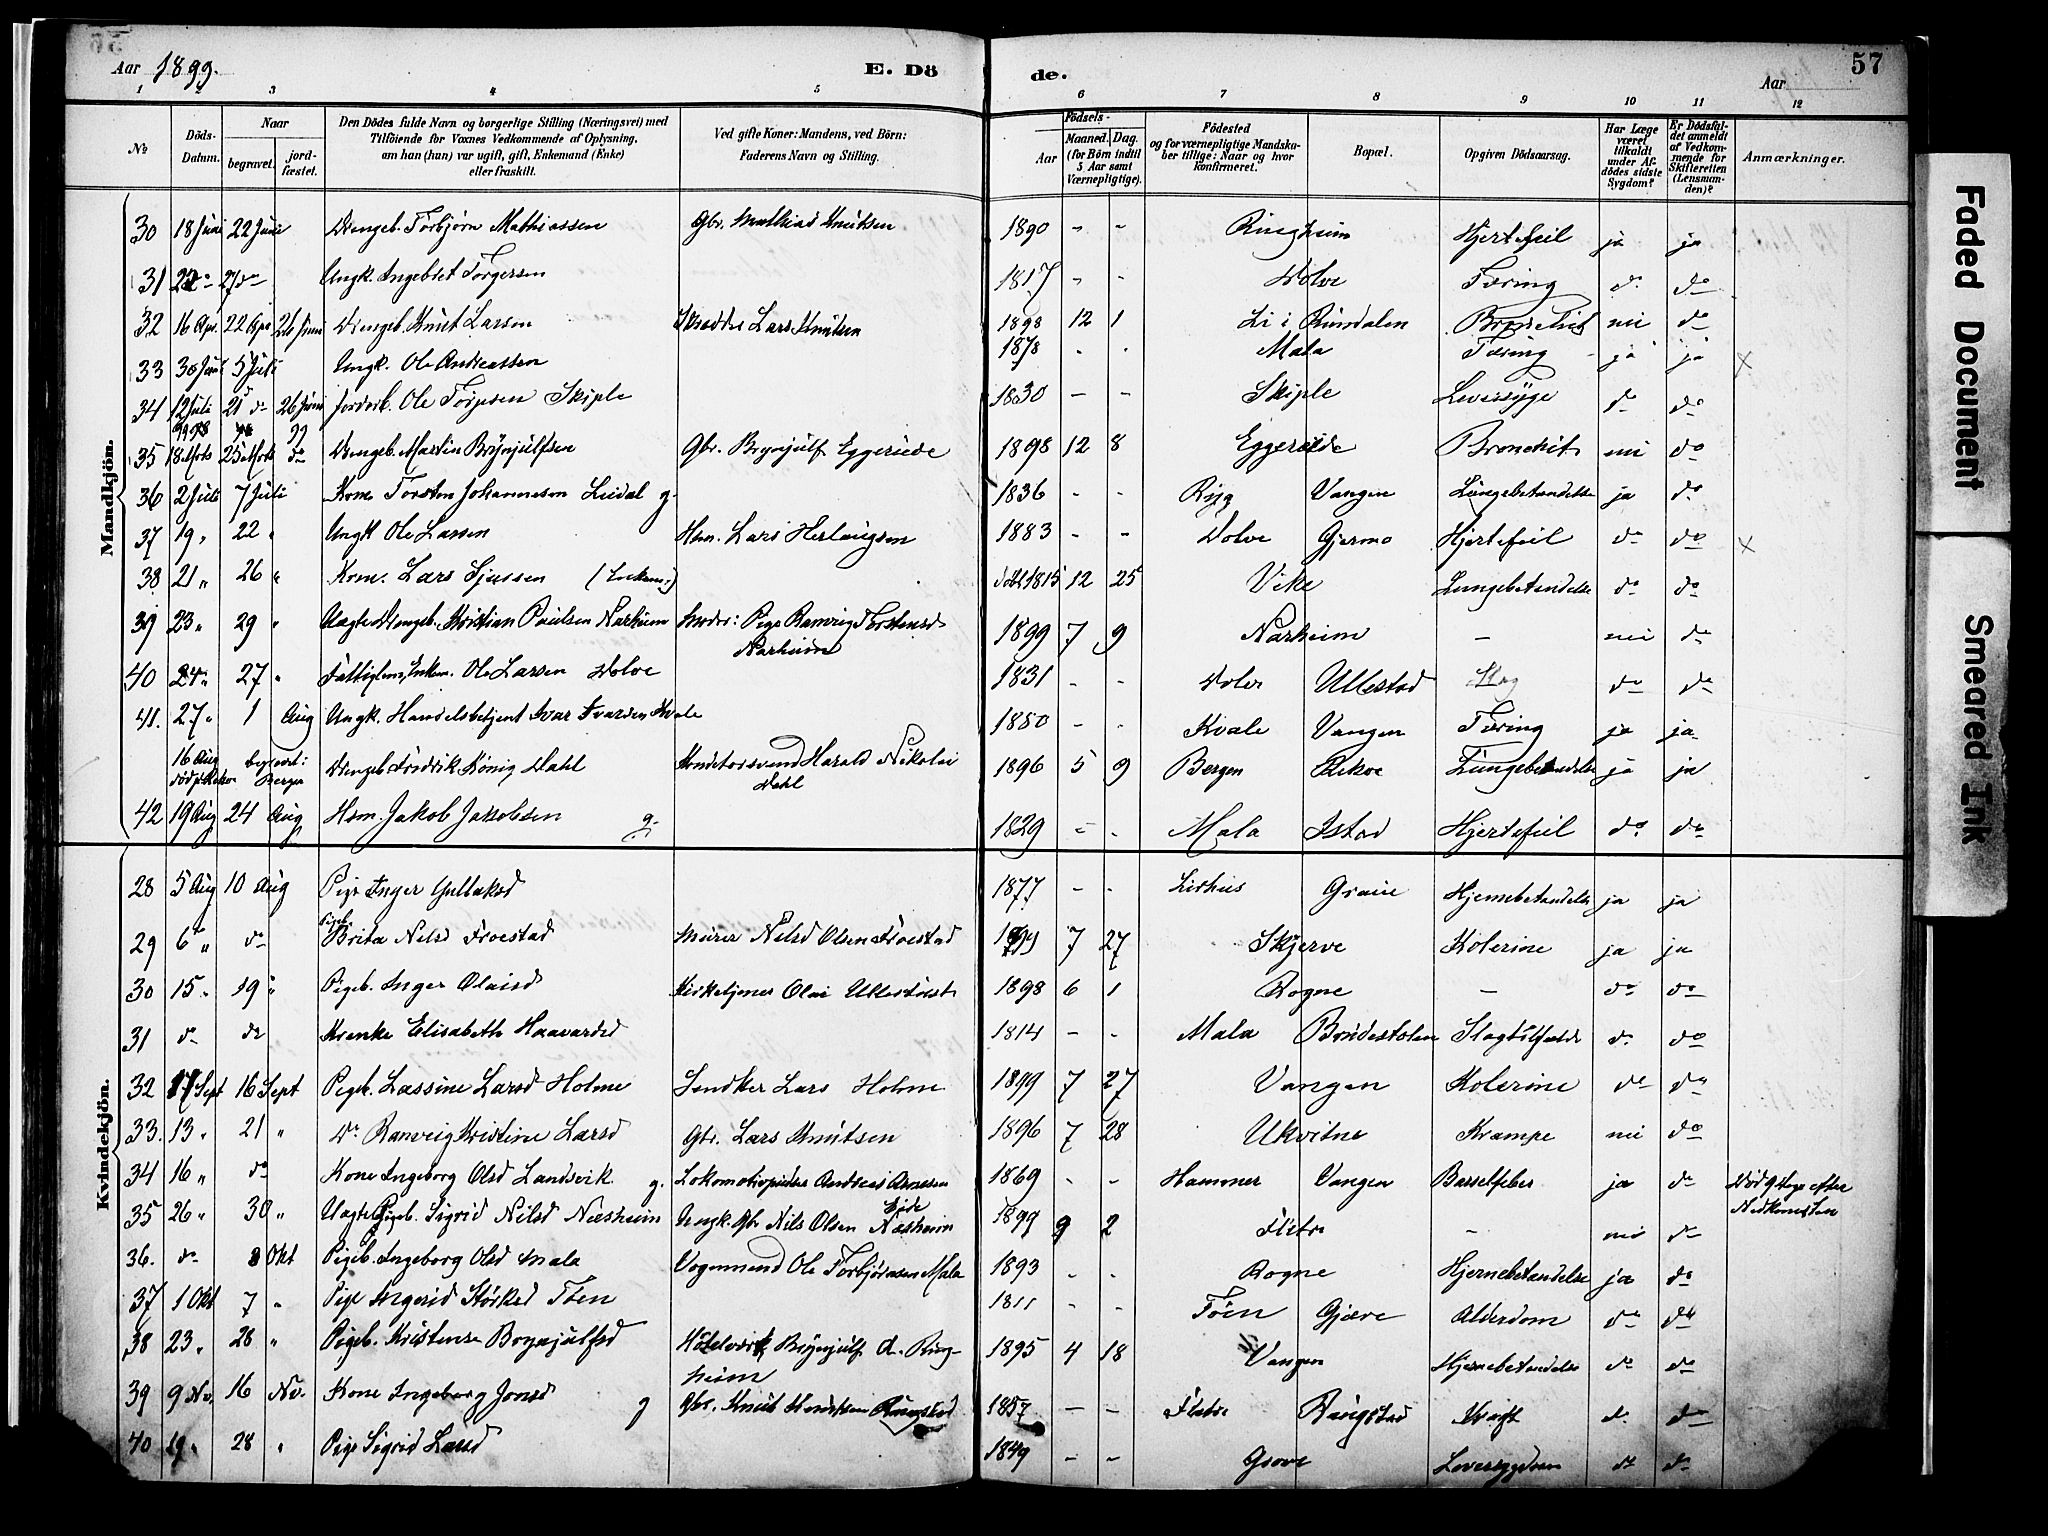 Aar 1899.
E. Dö
de.
Aar
57
1 2 3 4 5 6 7 8 9 10 11 12
No
Döds-Datum.
Naar
begravet.
jord-fæstet.
Den Dödes fulde Navn og borgerlige Stilling (Næringsvei) med
Tilföiende for Voxnes Vedkommende af Oplysning,
om han (hun) var ugift, gift, Enkemand (Enke)
eller fraskilt.
Ved gifte Koner: Mandens, ved Börn:
Faderens Navn og Stilling.
Födsels-
Aar
Maaned. Dag.
(for Börn indtil
5 Aar samt
Værnepligtige).
Födested
og for værnepligtige Mandska-
ber tillige: Naar og hvor
konfirmeret.
Bopæl.
Opgiven Dödsaarsag.
Har Læge
været
tilkaldt
under Af-
dödes sidste
Sygdom?
Er Dödsfal-
det anmeldt
af Vedkom-
mende for
Skifteretten
(Lensman-
den)?
Anmærkninger.
Mandkjön.
30 18 Juni 22 Juni Drengeb. Torbjørn Mathiassen Gbr. Mathias Knutsen 1890 - - Ringheim Hjertefeil ja ja
31 22 do 27 do Ungk. Ingebret Torgersen 1817 - - Dolve Tæring do do
32 16 Apr. 22 Apr 26 Juni Drengeb. Knut Larsen Skrædder Lars Knutsen 1898 12 1 Li i Rundalen Bronchit nei do
33 30 Juni 5 Juli Ungk. Ole Andreassen 1878 - - Mala Tæring ja ja x
34 12 Juli 21 do 26 Juni Jordarb. Ole Torpesen Skiple 1830 - - Skiple Leversyge do do
35 18 Marts 25 Marts do Drengeb. Martin Brynjulfsen Gbr. Brynjulf Eggereide 1898 12 8 Eggereide Bronchit nei do
36 2 Juli 7 Juli Kone Torsten Johannesen Lridal g. 1836 - - Ryg Vangen Lungebetændelse ja do
37 19 " 22 " Ungk Ole Larsen Hsm. Lars Herlaugsen 1883 - - Dolve Gjerme Hjertefeil do do x
38 21 " 26 " Kom. Lars Sjursen (Enkem.) døbt 1815 12 25 Vike Lungebetændelse do do
39 23 " 29 " Uægte Drengeb. Kristian Paulsen Narheim Moder: Pige Ranveig Torstensd Narheim 1899 7 9 Narheim - nei do
40 24 " 27 " Fattiglem, Enkem. Ole Larsen Dolve 1831 - - Dolve Ullestad Slag do do
41. 27 " 1 Aug Ungk. Handelsbetjent Ivar Ivarsen Kvale 1850 - - Kvale Vangen Tæring ja ja
16 Aug død p. Rekve begravet: Bergen Drengeb. Fredrik König Dahl Konditorsvend Harald Nikolai Dahl 1896 5 9 Bergen Rekve Lungebetændelse ja ja
42 19 Aug 24 Aug Hsm. Jakob Jakobsen g. 1829 - - Mala Istad Hjertefeil do do
Kvindekjön.
28 5 Aug 10 Aug Pige Inger Gullaksd 1877 - - Lirhus Graue Hjernebetændelse ja ja
29 6 " do Pigeb. Brita Nelsd Froestad Murer Nelsd Olsen Froestad 1899 7 27 Skjerve Kolerine ja ja
30 15 " 19 " Pigeb. Inger Olaisd Kirketjener Olai Ullestad 1898 6 1 Rogne - do do
31 do do Kjenke Elisabeth Haavardsd 1814 - - Mala Brudestolen Slagtilfælde do do
32 17 Sept 16 Sept Pigeb. Lassine Larsd Holme Snedker Lars Holme 1899 7 27 Vangen Kolerine do do
33. 13 " 21 " Do Ranveig Kristine Larsd Gbr. Lars Knutsen 1896 7 28 Ukvitne Krampe nei do
34 16 " do Kone Ingeborg Olsd Landsvik g. Lokomotivpudser Andreas Arnesen 1869 - - Hammer Vangen Barselfeber ja do Død 9 Dage efter Nedkomsten
35 26 " 30 " Uægte Pigeb. Sigrid Nilsd Næsheim Ungk. Gbr Nils Olsen Eide Næsheim 1899 9 2 Fletre - nei do
36. do 3 Okt Pigeb. Ingeborg Olsd Mala Vognmand Ole Torbjørnsen Mala 1893 - - Rogne Hjernebetændelse ja do
37 1 Okt 7 " Pige Ingerid Størksd Tøen 1811 - - Tøen Gjære Alderdom do do
38 23 " 28 " Pigeb. Kristense Brynjulfsd Hotelvært Brynjulf A. Ringheim 1895 4 18 Vangen Hjernebetændelse do do
39 9 Nov. 16 Nov. Kone Ingeborg Jonsd g Gbr. Knut Henriksen Raugstad 1857 - - Fletre Raugstad Kræft do do
40 19 " 28 " Pige Sigrid Larsd 1849 - - Grove Leversygdom do do
Faded Document
Smeared Ink